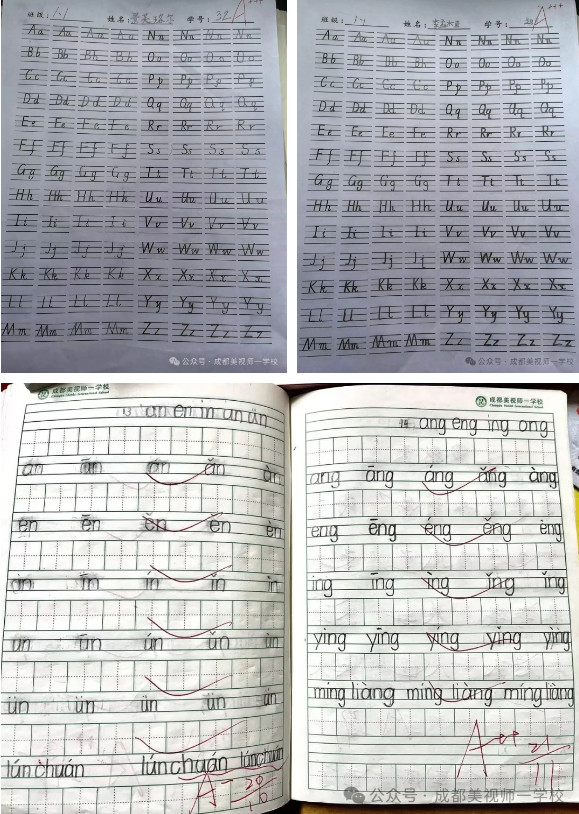 班级: 1.1 姓名: 学号: 32 A+++
Aa Aa Aa Aa Nn Nn Nn Nn
Bb Bb Bb Bb Oo Oo Oo Oo
Cc Cc Cc Cc Pp Pp Pp Pp
Dd Dd Dd Dd Qq Qq Qq Qq
Ee Ee Ee Ee Rr Rr Rr Rr
Ff Ff Ff Ff Ss Ss Ss Ss
Gg Gg Gg Gg Tt Tt Tt Tt
Hh Hh Hh Hh Uu Uu Uu Uu
Ii Ii Ii Ii Vv Vv Vv Vv
Jj Jj Jj Jj Ww Ww Ww Ww
Kk Kk Kk Kk Xx Xx Xx Xx
Ll Ll Ll Ll Yy Yy Yy Yy
Mm Mm Mm Mm Zz Zz Zz Zz
公众号·成都美视师一学校
班级: 1.1 姓名: 学号: A+++
Aa Aa Aa Aa Nn Nn Nn Nn
Bb Bb Bb Bb Oo Oo Oo Oo
Cc Cc Cc Cc Pp Pp Pp Pp
Dd Dd Dd Dd Qq Qq Qq Qq
Ee Ee Ee Ee Rr Rr Rr Rr
Ff Ff Ff Ff Ss Ss Ss Ss
Gg Gg Gg Gg Tt Tt Tt Tt
Hh Hh Hh Hh Uu Uu Uu Uu
Ii Ii Ii Ii Vv Vv Vv Vv
Jj Jj Jj Jj Ww Ww Ww Ww
Kk Kk Kk Kk Xx Xx Xx Xx
Ll Ll Ll Ll Yy Yy Yy Yy
Mm Mm Mm Mm Zz Zz Zz Zz
公众号·成都美视师一学校
成都美视师一学校
13 an en in un ün
an ān án ǎn àn
en ēn ěn en èn
in īn ín ǐn ìn
un ūn ún ǔn ùn
ün ün ün ün ün
lúnchuán lúnchuán lúnchuán
A-
成都美视师一学校
14 ang eng ing ong
ang āng áng ǎng àng
eng ēng éng ěng èng
ing īng íng ǐng ǐng
ying yīng yíng yǐng yìng
míng liàng míng liàng míng liàng
A++
公众号·成都美视师一学校